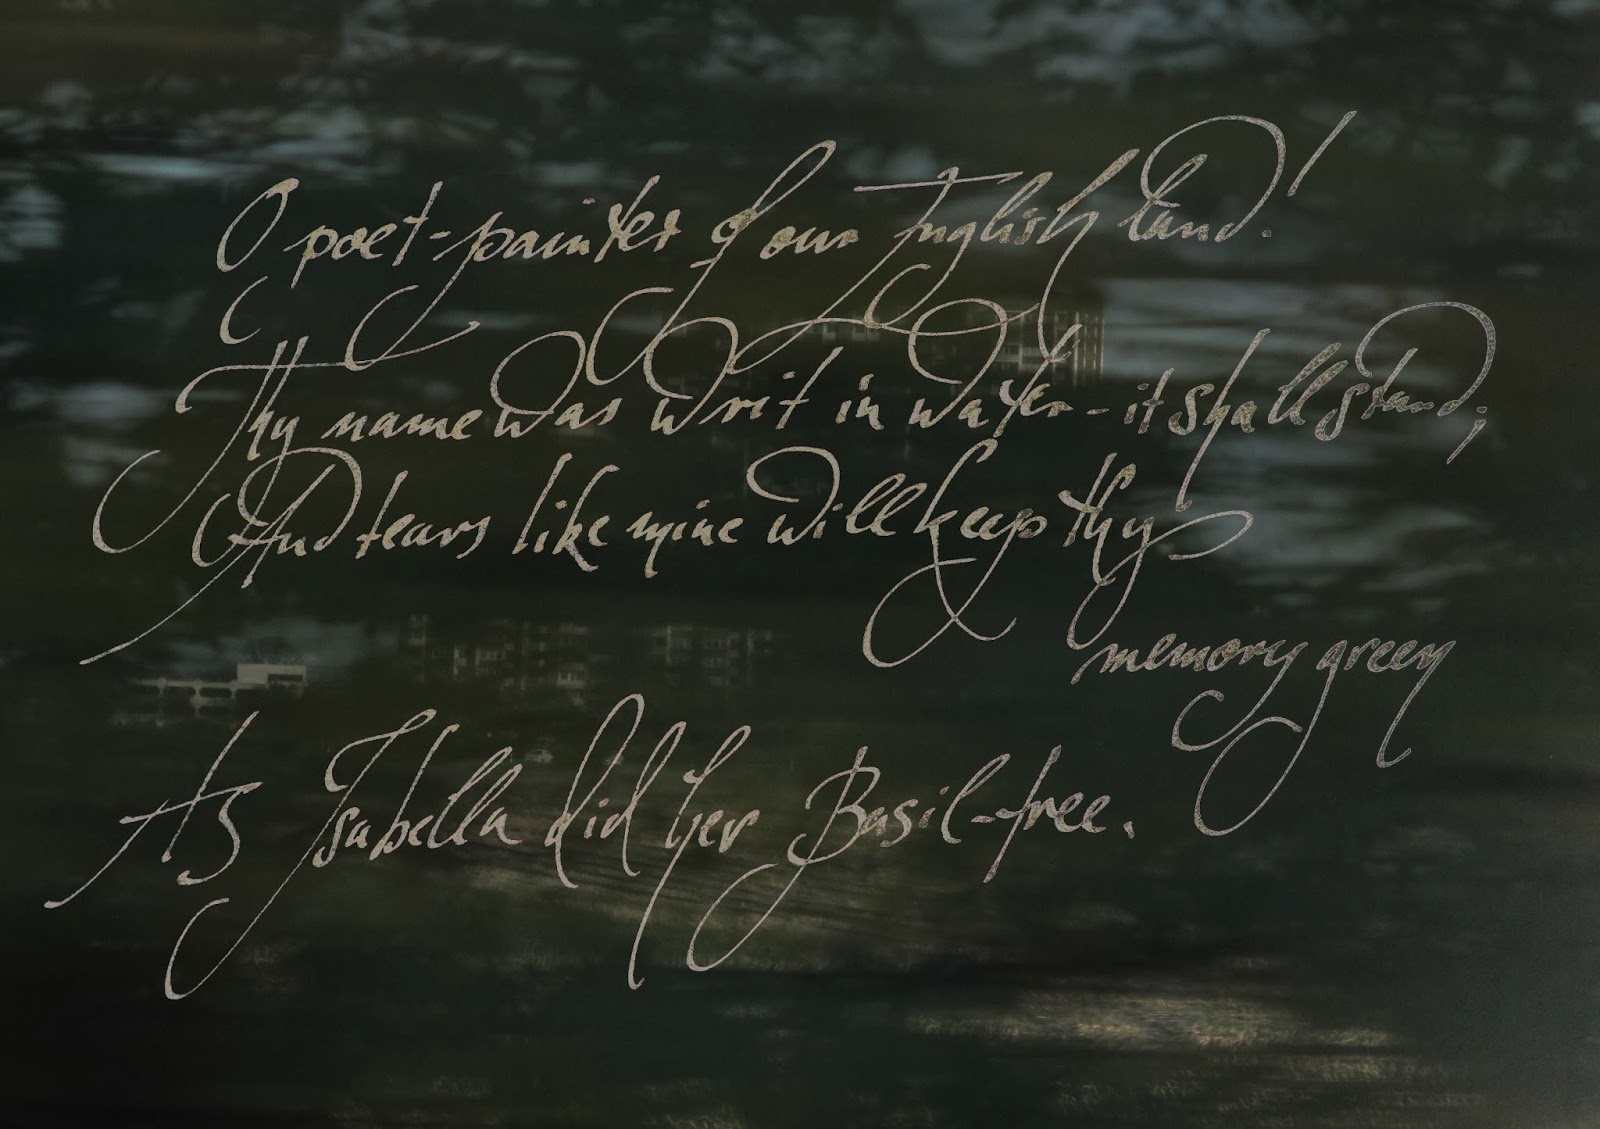 O poet-painter of our English land!
Thy name was writ in water - it shall stand;
And tears like mine will keep thy
memory green
As Isabella did her Basil-tree.